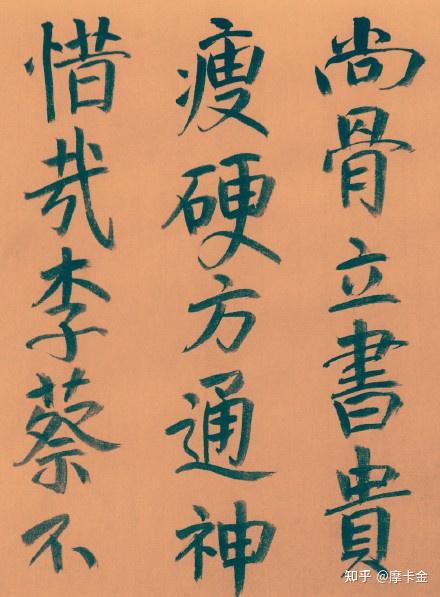 尚骨立書貴
瘦硬方通神
惜哉李蔡不
知乎 @摩卡金